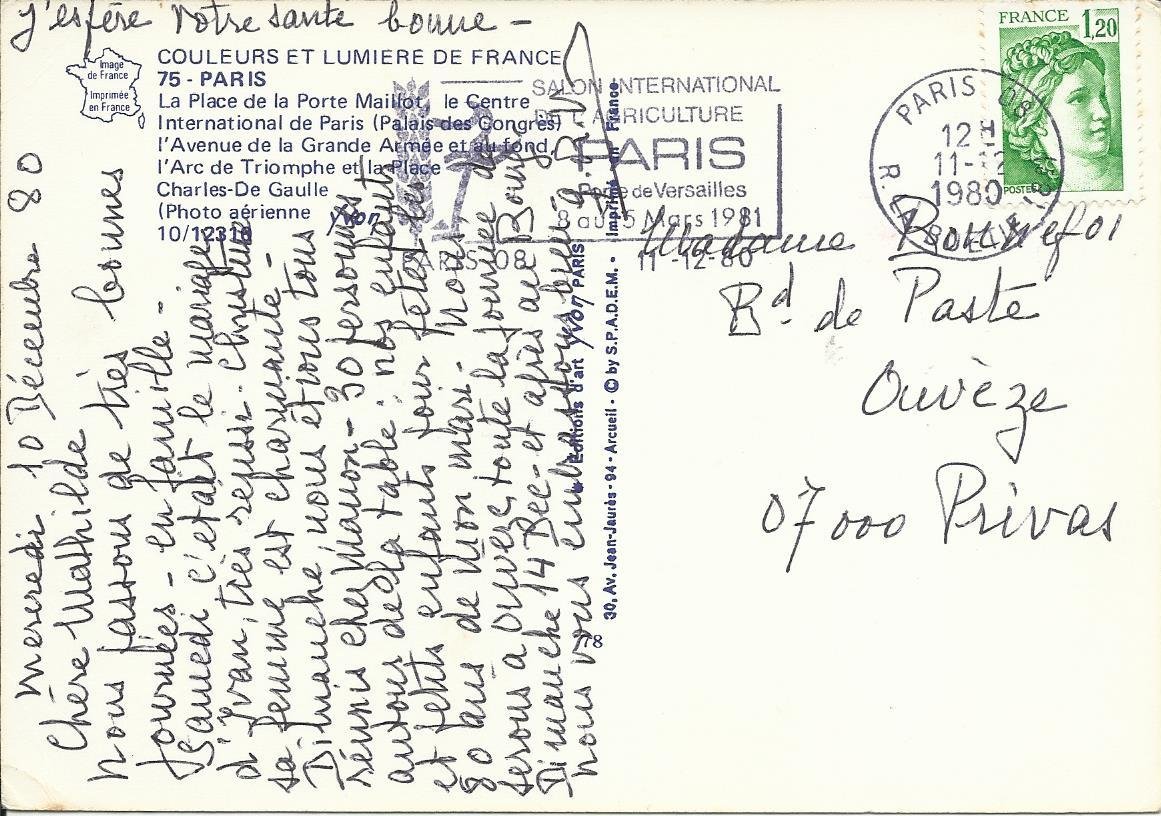 J'espère votre santé bonne -
Image
de France
Imprimée
en France
COULEURS ET LUMIERE DE FRANCE
75 - PARIS
La Place de la Porte Maillot, le Centre
International de Paris (Palais des Congrès)
l'Avenue de la Grande Armée et au fond,
l'Arc de Triomphe et la Place
Charles-De Gaulle
(Photo aérienne yvon
10/12318
SALON INTERNATIONAL
DE L'AGRICULTURE
PARIS
Porte de Versailles
8 au 15 Mars 1981
PARIS 08 11-12-80
PARIS 08
12 H
11-12
1980
FRANCE 1,20
POSTES
mercredi 10 Décembre 80
Chère Mathilde
nous passons de très bonnes
journées - en famille -
Samedi c'était le mariage
d'Yvan, très réussi - Christine
sa femme est charmante -
Dimanche, nous étions tous
réunis chez Manon - 30 personnes
autour de la table : nos enfants
et petits enfants pour fêter les
80 ans de mon mari - Nous
serons à Ouvèze, toute la journée de
Dimanche 14 Déc - et après au Bourg
nous vous embrassons bien
Editions d'art yvon PARIS
30, Av. Jean-Jaurès - 94 - Arcueil - © by S.P.A.D.E.M. - Imprimé en France
78
Madame Bonnefoi
Bd. de Paste
Ouvèze
07000 Privas